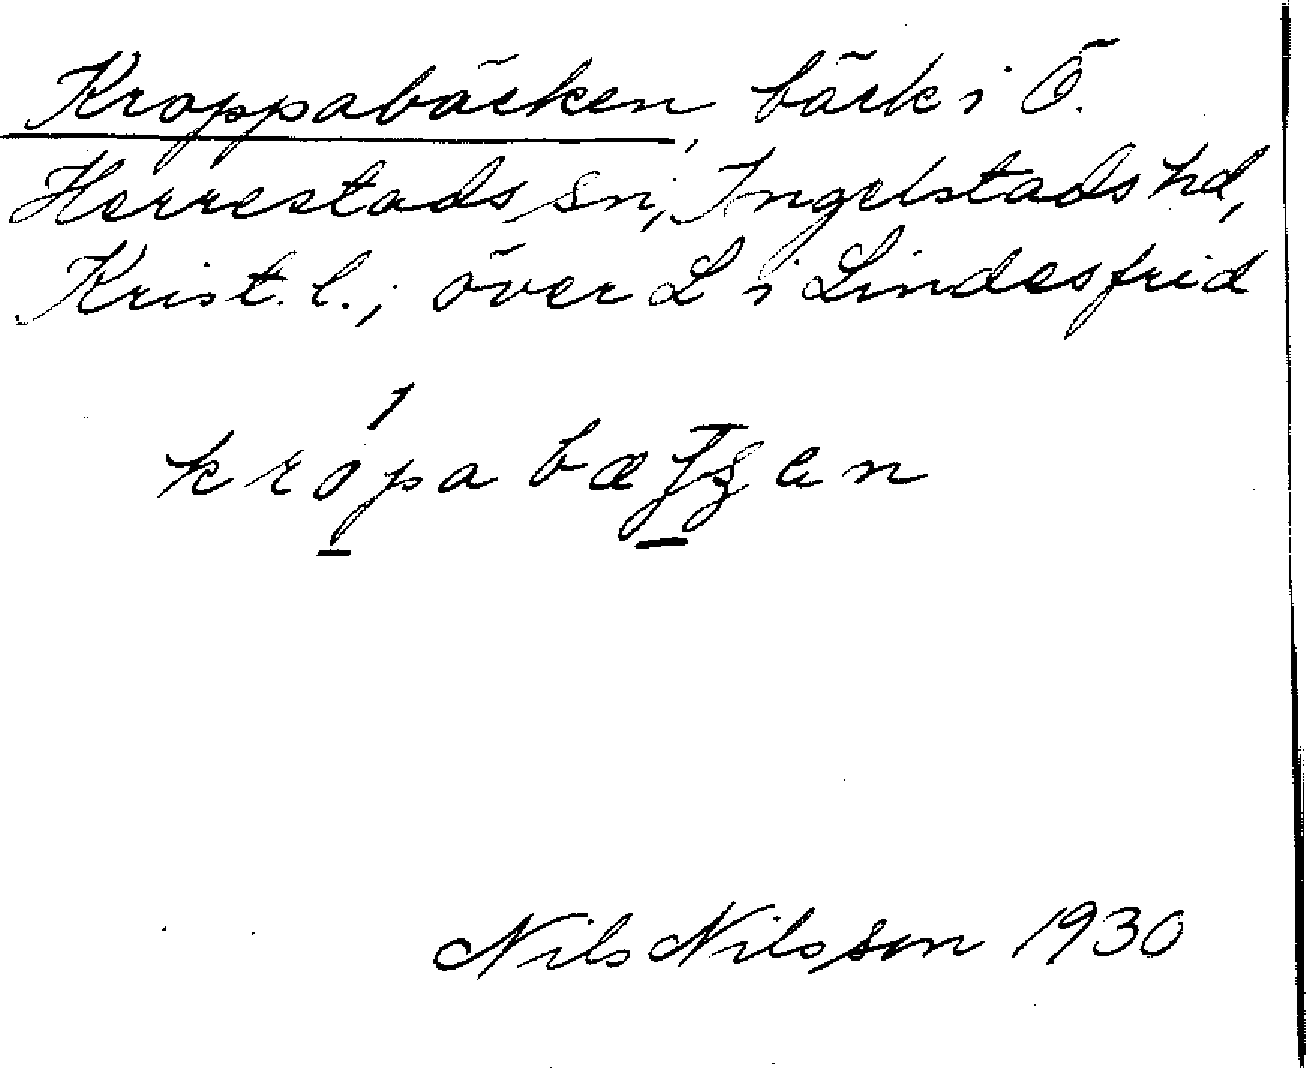 Kroppabäcken, bäck i Ö.
Herrestads sn, Ingelstads hd,
Krist. l.; över L i Lindesfrid
Nils Nilsson 1930